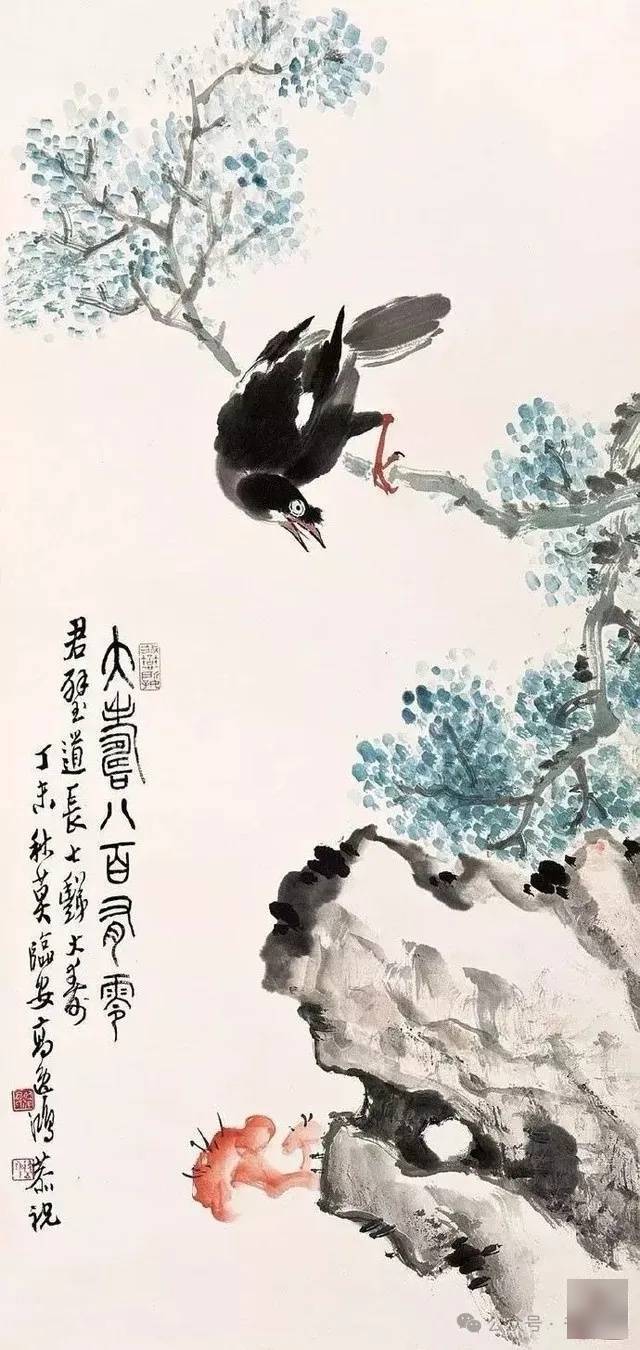 大壽八百有零
君璧道長七豑大壽
丁未秋莫臨安高逸鴻恭祝
公众号